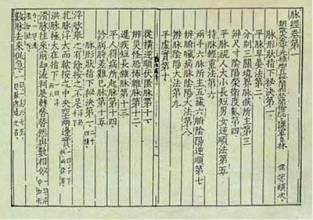 脉經卷第一
朝散大夫守光祿卿直秘閣判登聞檢院上護軍臣林億等類次
脉形狀指下秘決第一
平脉早晏法第二
分別三關境界脉候所主第三
辨尺寸陰陽榮衛度數第四
平脉視人大小長短男女逆順法第五
持脉輕重法第六
兩手六脉所主五藏六腑陰陽逆順第七
辨藏腑病脉陰陽大法第八
辨脉陰陽大法第九
平虛實第十
從橫逆順伏匿脉第十一
辨災怪恐怖雜脉第十二
遲疾短長雜脉第十三
平人得病所起第十四
診病將差難已脉第十五
脉形狀指下秘決第一
浮脉舉之有餘按之不足
芤脉浮大而軟按之中央空兩邊實
洪脉極大在指下
滑脉往來前却流利展轉替替然與數相似
數脉去來促急